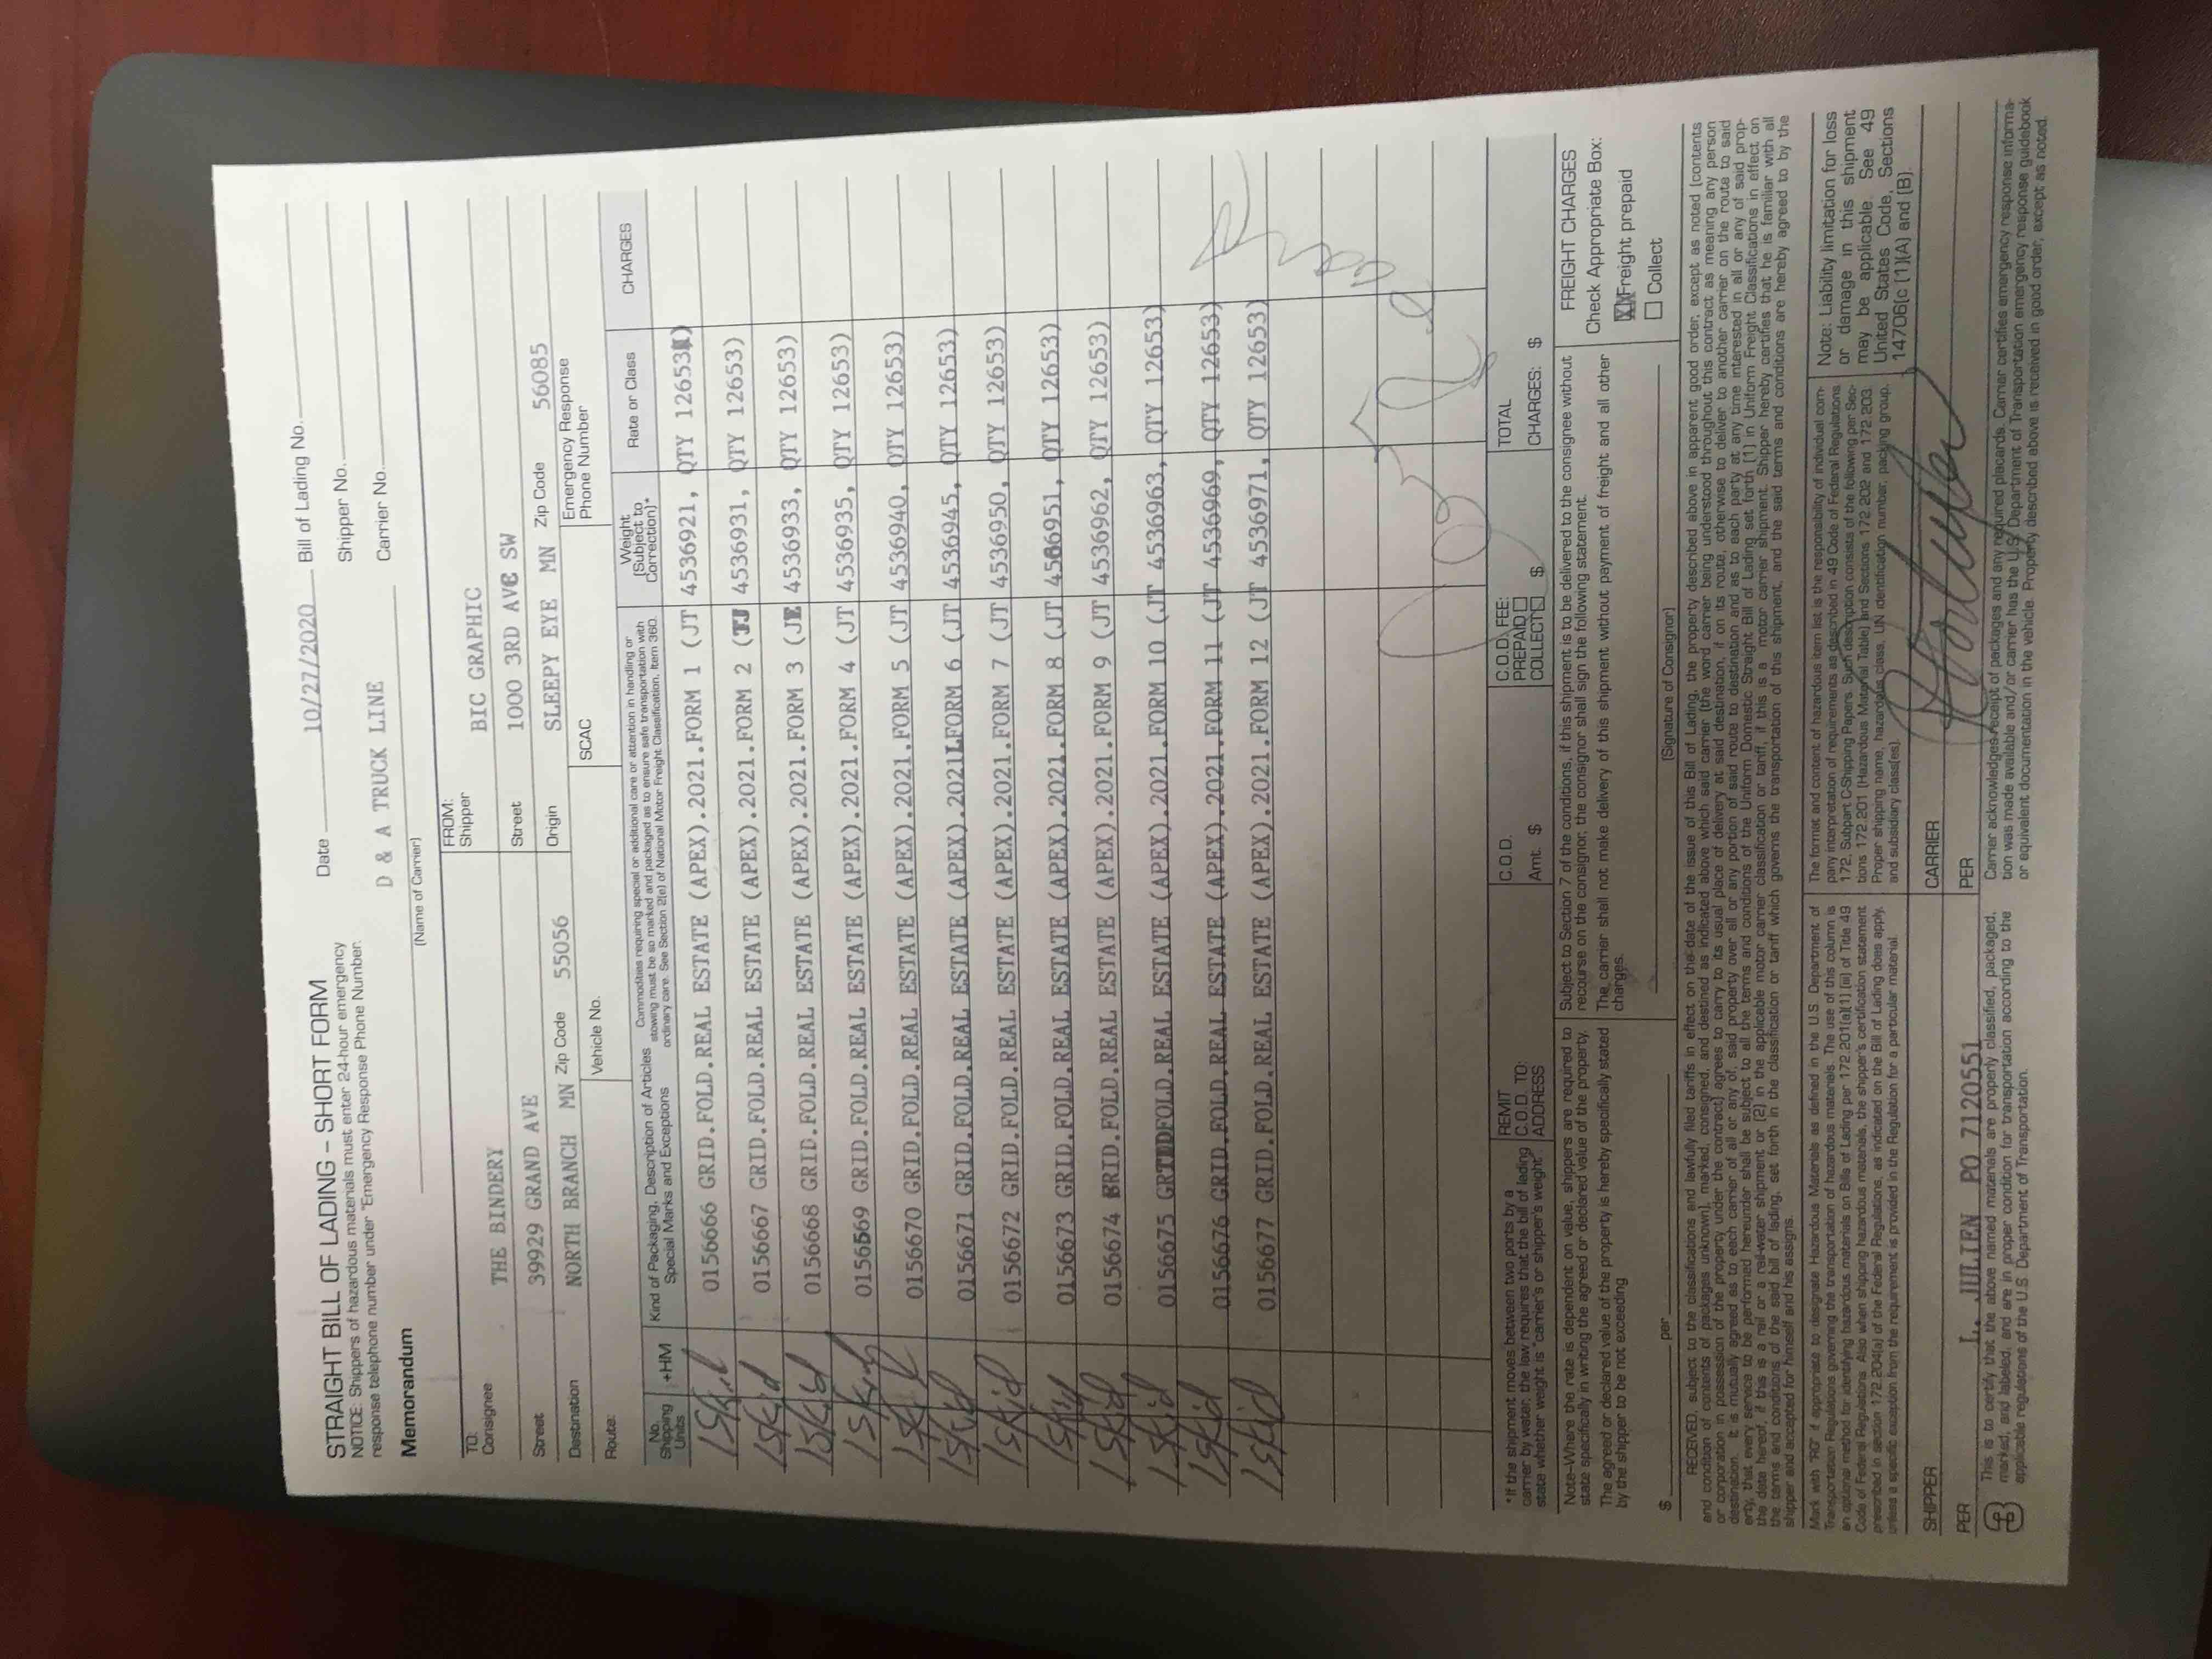 STRAIGHT BILL OF LADING – SHORT FORM
NOTICE: Shippers of hazardous materials must enter 24-hour emergency
response telephone number under "Emergency Response Phone Number."
Date 10/27/2020 Bill of Lading No.
Shipper No.
Memorandum D & A TRUCK LINE Carrier No.
(Name of Carrier)
TO: FROM:
Consignee THE BINDERY Shipper BIC GRAPHIC
Street 39929 GRAND AVE Street 1000 3RD AVE SW
Destination NORTH BRANCH MN Zip Code 55056 Origin SLEEPY EYE MN Zip Code 56085
Route: Vehicle No. SCAC Emergency Response
Phone Number
No. Shipping Units +HM Kind of Packaging, Description of Articles Special Marks and Exceptions
Commodities requiring special or additional care or attention in handling or
stowing must be so marked and packaged as to ensure safe transportation with
ordinary care. See Section 2(e) of National Motor Freight Classification, Item 360.
Weight (Subject to Correction)* Rate or Class CHARGES
1 Skid 0156666 GRID.FOLD.REAL ESTATE (APEX).2021.FORM 1 (JT 4536921, QTY 12653)
1 Skid 0156667 GRID.FOLD.REAL ESTATE (APEX).2021.FORM 2 ( 4536931, QTY 12653)
1 Skid 0156668 GRID.FOLD.REAL ESTATE (APEX).2021.FORM 3 ( 4536933, QTY 12653)
1 Skid 0156669 GRID.FOLD.REAL ESTATE (APEX).2021.FORM 4 (JT 4536935, QTY 12653)
1 Skid 0156670 GRID.FOLD.REAL ESTATE (APEX).2021.FORM 5 (JT 4536940, QTY 12653)
1 Skid 0156671 GRID.FOLD.REAL ESTATE (APEX).2021LFORM 6 (JT 4536945, QTY 12653)
1 Skid 0156672 GRID.FOLD.REAL ESTATE (APEX).2021.FORM 7 (JT 4536950, QTY 12653)
1 Skid 0156673 GRID.FOLD.REAL ESTATE (APEX).2021.FORM 8 (JT 4536951, QTY 12653)
1 Skid 0156674 GRID.FOLD.REAL ESTATE (APEX).2021.FORM 9 (JT 4536962, QTY 12653)
1 Skid 0156675 GRIDFOLD.REAL ESTATE (APEX).2021.FORM 10 (JT 4536963, QTY 12653)
1 Skid 0156676 GRID.FOLD.REAL ESTATE (APEX).2021.FORM 11 (JT 4536969, QTY 12653)
1 Skid 0156677 GRID.FOLD.REAL ESTATE (APEX).2021.FORM 12 (JT 4536971, QTY 12653)
*If the shipment moves between two ports by a
carrier by water, the law requires that the bill of lading
state whether weight is "carrier's or shipper's weight."
REMIT
C.O.D. TO:
ADDRESS
C.O.D.
Amt. $
C.O.D. FEE:
PREPAID
COLLECT $
TOTAL
CHARGES: $
Note–Where the rate is dependent on value, shippers are required to
state specifically in writing the agreed or declared value of the property.
The agreed or declared value of the property is hereby specifically stated
by the shipper to be not exceeding
$ per
Subject to Section 7 of the conditions, if this shipment is to be delivered to the consignee without
recourse on the consignor, the consignor shall sign the following statement.
The carrier shall not make delivery of this shipment without payment of freight and all other
charges.
(Signature of Consignor)
FREIGHT CHARGES
Check Appropriate Box:
XX Freight prepaid
Collect
RECEIVED, subject to the classifications and lawfully filed tariffs in effect on the date of the issue of this Bill of Lading, the property described above in apparent good order, except as noted (contents
and condition of contents of packages unknown), marked, consigned, and destined as indicated above which said carrier (the word carrier being understood throughout this contract as meaning any person
or corporation in possession of the property under the contract) agrees to carry to its usual place of delivery at said destination, if on its route, otherwise to deliver to another carrier on the route to said
destination. It is mutually agreed as to each carrier of all or any of, said property over all or any portion of said route to destination and as to each party at any time interested in all or any of said prop-
erty, that every service to be performed hereunder shall be subject to all the terms and conditions of the Uniform Domestic Straight Bill of Lading set forth (1) in Uniform Freight Classifications in effect on
the date hereof, if this is a rail or a rail-water shipment or (2) in the applicable motor carrier classification or tariff, if this is a motor carrier shipment. Shipper hereby certifies that he is familiar with all
the terms and conditions of the said bill of lading, set forth in the classification or tariff which governs the transportation of this shipment, and the said terms and conditions are hereby agreed to by the
shipper and accepted for himself and his assigns.
Mark with "RQ" if appropriate to designate Hazardous Materials as defined in the U.S. Department of
Transportation Regulations governing the transportation of hazardous materials. The use of this column is
an optional method for identifying hazardous materials on Bills of Lading per 172.201(a)(1) (iii) of Title 49
Code of Federal Regulations. Also when shipping hazardous materials, the shipper's certification statement
prescribed in section 172.204(a) of the Federal Regulations, as indicated on the Bill of Lading does apply,
unless a specific exception from the requirement is provided in the Regulation for a particular material.
The format and content of hazardous item list is the responsibility of individual com-
pany interpretation of requirements as described in 49 Code of Federal Regulations
172, Subpart C-Shipping Papers. Such description consists of the following per Sec-
tions 172.201 (Hazardous Material Table) and Sections 172.202 and 172.203.
Proper shipping name, hazardous class, UN identification number, packing group,
and subsidiary class(es).
Note: Liability limitation for loss
or damage in this shipment
may be applicable. See 49
United States Code, Sections
14706(c (1)(A) and (B).
SHIPPER CARRIER
PER L. JULIEN PO 7120551 PER
This is to certify that the above named materials are properly classified, packaged,
marked, and labeled, and are in proper condition for transportation according to the
applicable regulations of the U.S Department of Transportation.
Carrier acknowledges receipt of packages and any required placards. Carrier certifies emergency response informa-
tion was made available and/or carrier has the U.S. Department of Transportation emergency response guidebook
or equivalent documentation in the vehicle. Property described above is received in good order, except as noted.